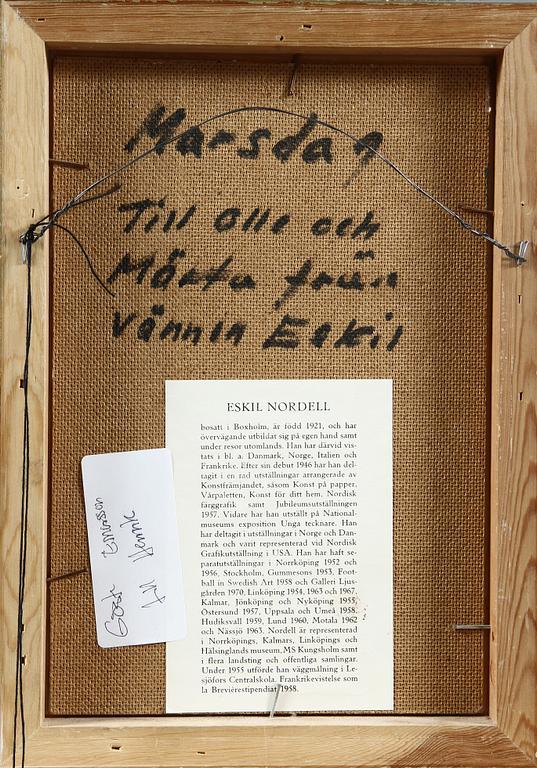 Marsdag
Till Olle och
Märta från
vännin Eskil
ESKIL NORDELL
bosatt i Boxholm, är född 1921, och har
övervägande utbildat sig på egen hand samt
under resor utomlands. Han har därvid vis-
tats i bl. a. Danmark, Norge, Italien och
Frankrike. Efter sin debut 1946 har han del-
tagit i en rad utställningar arrangerade av
Konstfrämjandet, såsom Konst på papper,
Vårpaletten, Konst för ditt hem, Nordisk
färggrafik samt Jubileumsutställningen
1957. Vidare har han utställt på National-
museums exposition Unga tecknare. Han
har deltagit i utställningar i Norge och Dan-
mark och varit representerad vid Nordisk
Grafikutställning i USA. Han har haft se-
paratutställningar i Norrköping 1952 och
1956, Stockholm, Gummesons 1953, Foot-
ball in Swedish Art 1958 och Galleri Ljus-
gården 1970, Linköping 1954, 1963 och 1967,
Kalmar, Jönköping och Nyköping 1955,
Östersund 1957, Uppsala och Umeå 1958,
Hudiksvall 1959, Lund 1960, Motala 1962
och Nässjö 1963. Nordell är representerad
i Norrköpings, Kalmars, Linköpings och
Hälsinglands museum, MS Kungsholm samt
i flera landsting och offentliga samlingar.
Under 1955 utförde han väggmålning i Le-
sjöfors Centralskola. Frankrikevistelse som
la Breviérestipendiat 1958.
Henrik